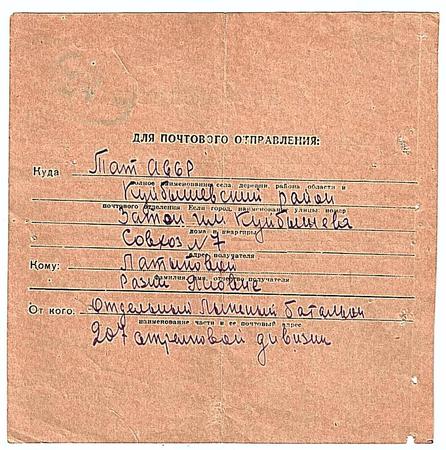 ДЛЯ ПОЧТОВОГО ОТПРАВЛЕНИЯ:
Куда Тат АССР
полное наименование села, деревни, района, области и
Куйбышевский район
почтового отделения. Если город, наименование улицы, номер
Затон им Куйбышева
дома и квартиры
Совхоз N 7
адрес получателя
Кому: Латыповой
Фамилия, имя, отчество получателя
От кого: Отдельный Лыжный батальон
наименование части и ее почтовый адрес
207 стрелковой дивизии